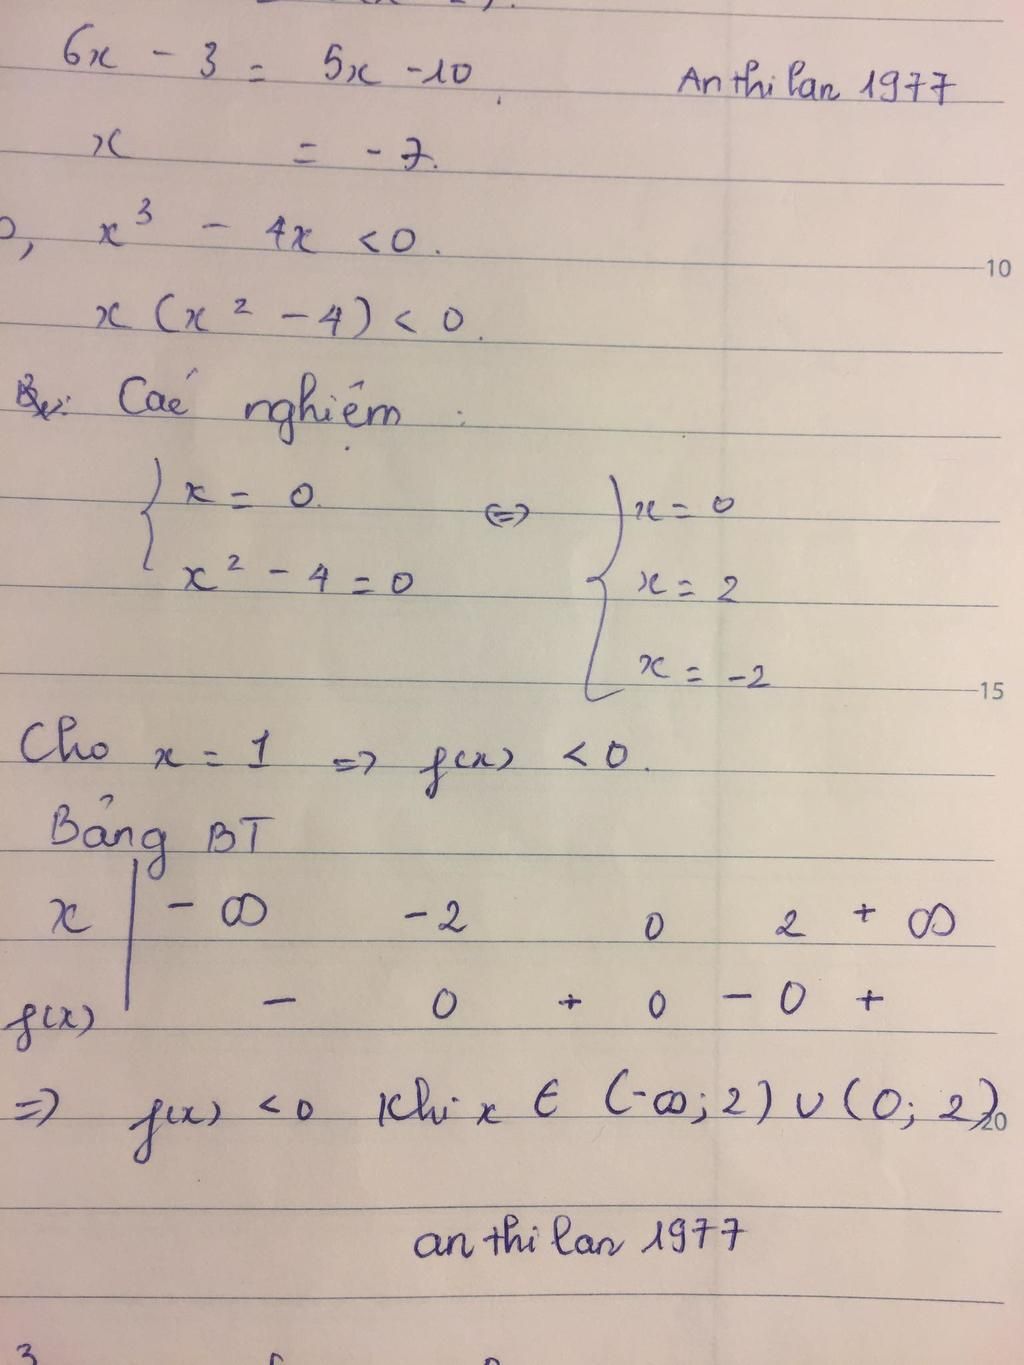 6x - 3 = 5x - 10
An thi lan 1977
x = - 7.
x³ - 4x < 0.
10
x (x² - 4) < 0.
Các nghiệm :
{ x = 0. <=> { x = 0
x² - 4 = 0 x = 2
x = -2
15
Cho x = 1 => f(x) < 0.
Bảng BT
x | - ∞ -2 0 2 + ∞
f(x) | - 0 + 0 - 0 +
=> f(x) < 0 khi x ∈ (-∞; 2) ∪ (0; 2)
20
an thi lan 1977
3